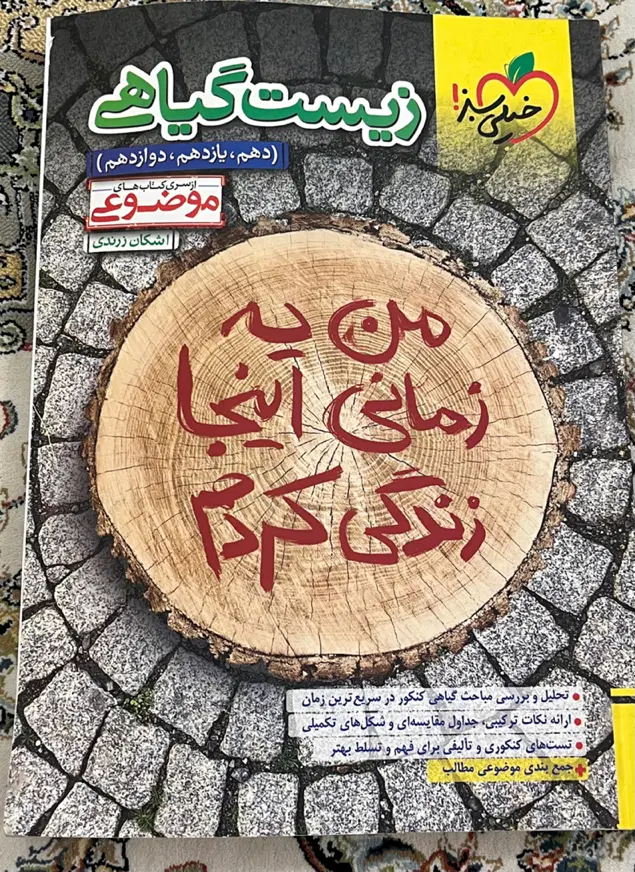 خیلی سبز!
زیست گیاهی
(دهم، یازدهم، دوازدهم)
از سری کتاب‌های
موضوعی
اشکان زرندی
من یه
زمانی اینجا
زندگی کردم
• تحلیل و بررسی مباحث گیاهی کنکور در سریع‌ترین زمان
• ارائه نکات ترکیبی، جداول مقایسه‌ای و شکل‌های تکمیلی
• تست‌های کنکوری و تألیفی برای فهم و تسلط بهتر
+ جمع بندی موضوعی مطالب